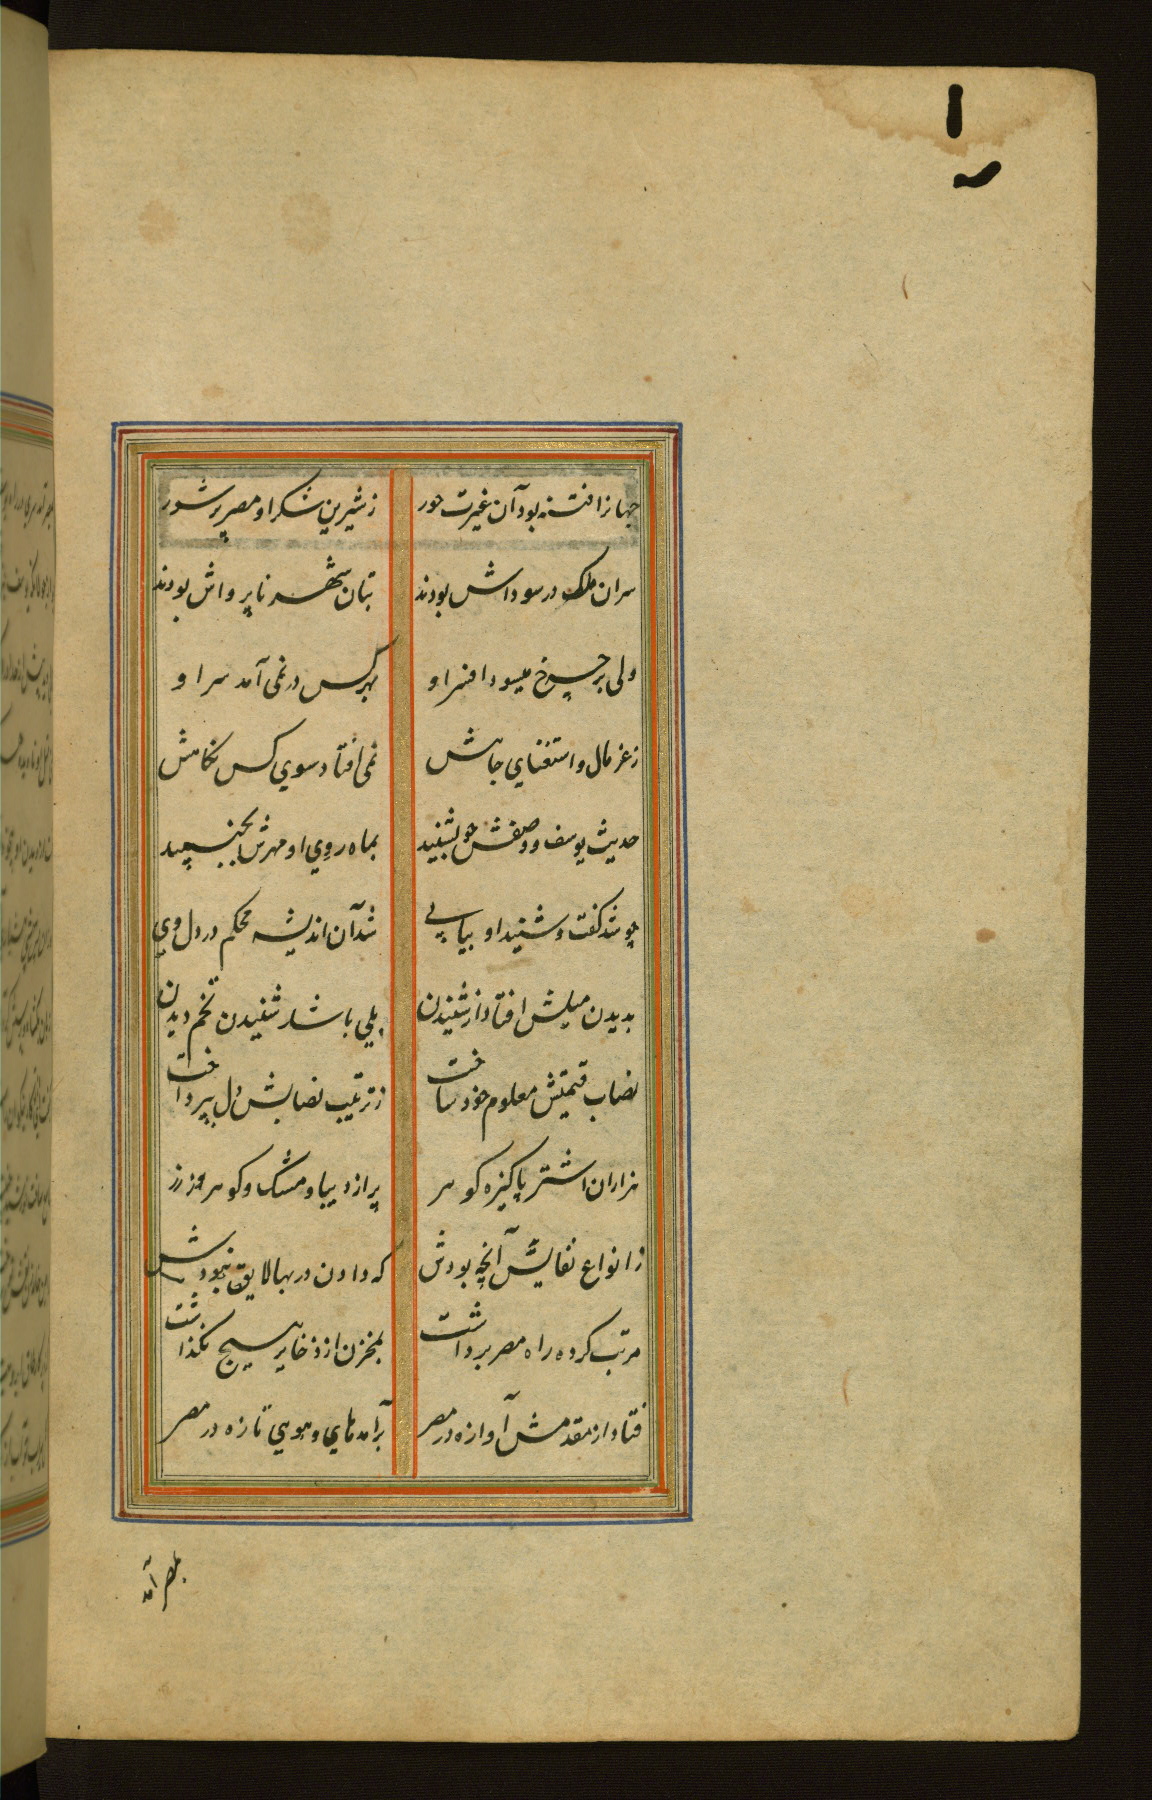 جهانرا فتنه بود آن غیرت حور    ز شیرین شکر او مصر پر شور
سران ملک در سوداش بودند    بتان شهر ناپرواش بودند
ولی بر چرخ میسود افسر او    بهر کس در نمی آمد سر او
ز عز مال و استغنای جاهش    نمی افتاد سوی کس نکاهش
حدیث یوسف و وصفش چو بشنید    بماه روی او مهرش بجنبید
چو شد کفت و شنید او پیاپی    شد آن اندیشه محکم در دل وی
بدیدن میلش افتاد از شنیدن    بلی باشد شنیدن تخم دیدن
نصاب قیمتش معلوم خود ساخت    ز ترتیب نصابش دل بپرداخت
هزاران اشتر پاکیزه کوهر    پر از دیبا و مشک و کوهر و زر
ز انواع نفایش آنچه بودش    که دادن در بها لایق نمودش
مرتب کرده راه مصر برداشت    بمخزن از ذخایر هیچ نکذاشت
فتاد از مقدمش آوازه در مصر    برآمد های و هویی تازه در مصر
بمصر آمد